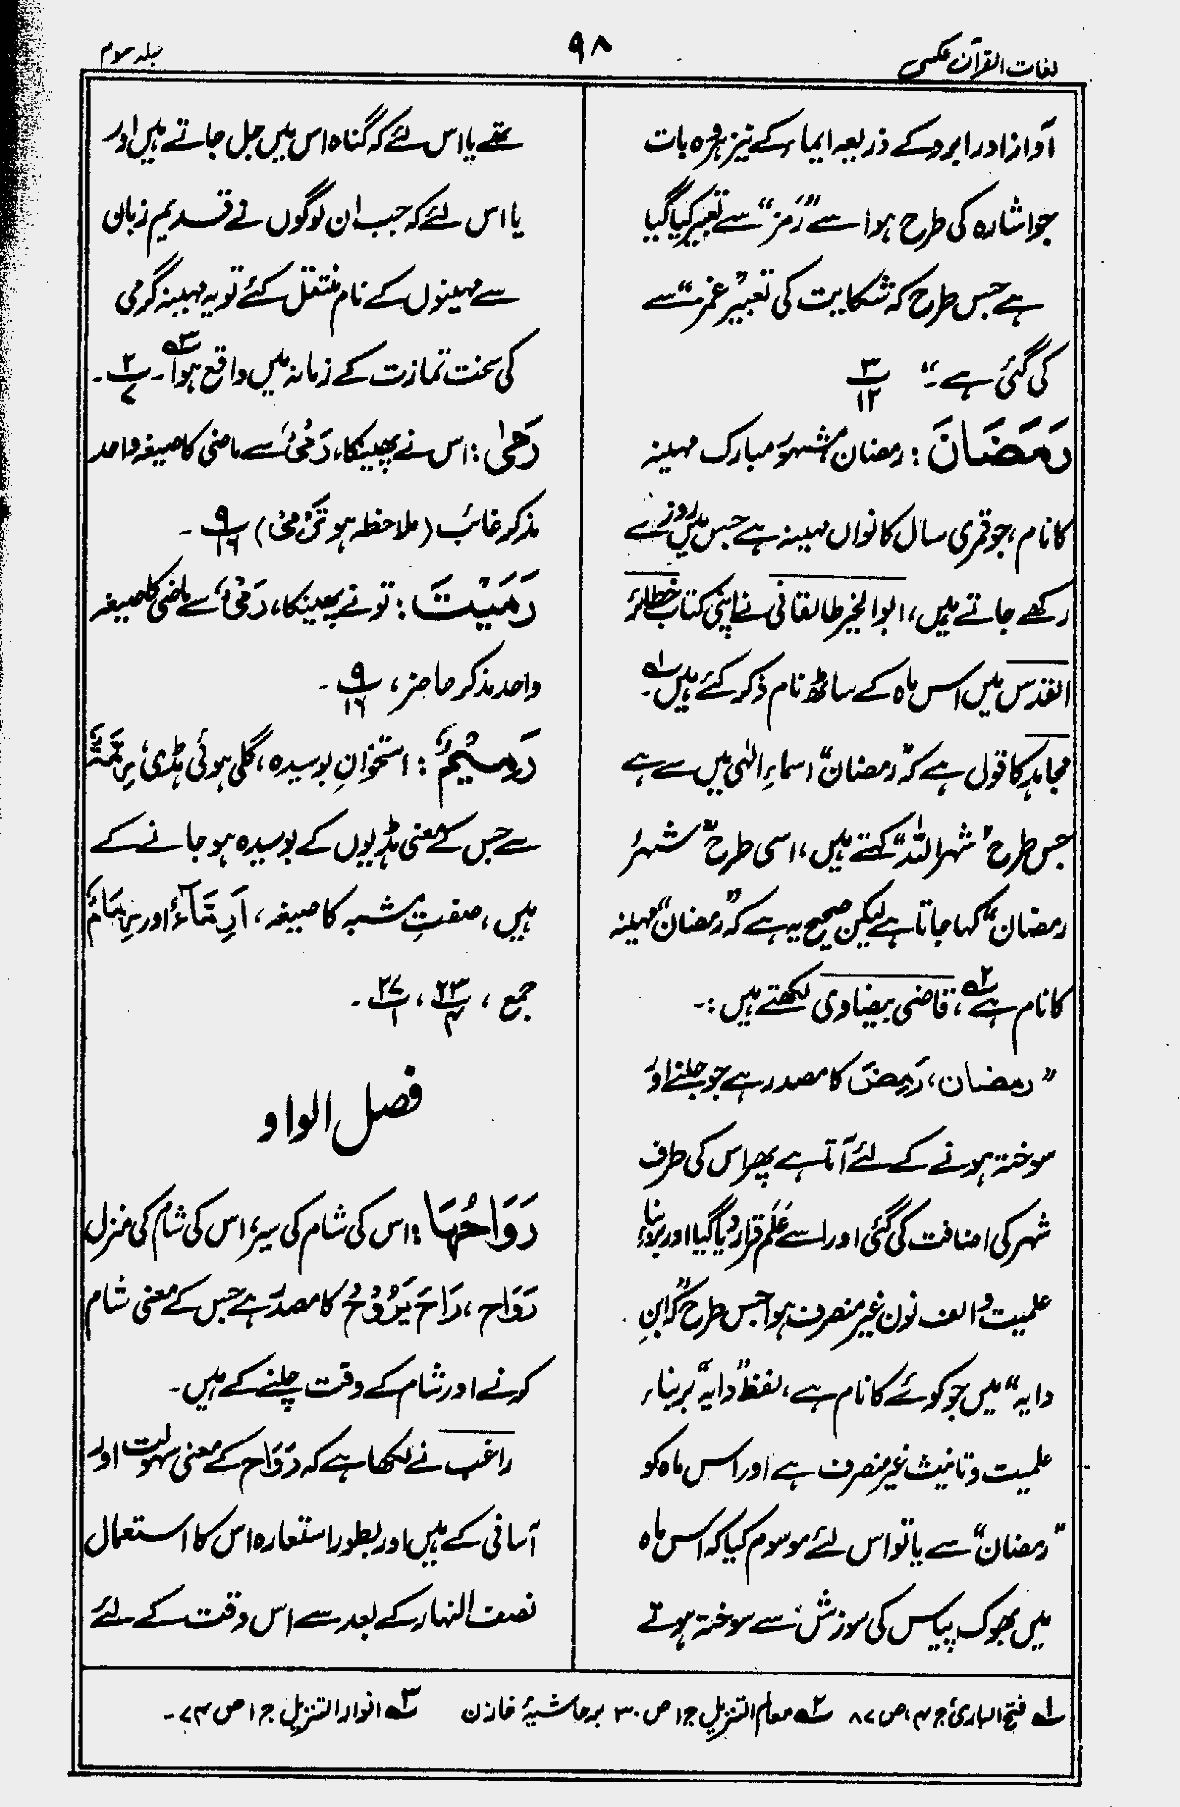 لغات القرآن عکسی
۹۸
جلد سوم
آواز اور ابرو کے ذریعہ ایماء کے نیز ہر وہ بات
جو اشارہ کی طرح ہو اسے "رَمز" سے تعبیر کیا گیا
ہے جس طرح کہ شکایت کی تعبیر "غمز" سے
کی گئی ہے۔" ۳/۱۲
رَمَضَانَ : رمضان مشہور مبارک مہینہ
کا نام، جو قمری سال کا نواں مہینہ ہے جس میں روزے
رکھے جاتے ہیں، ابو الخیر طالقانی نے اپنی کتاب خطائر
القدس میں اس ماہ کے ساٹھ نام ذکر کئے ہیں۔ؔ۱
مجاہد کا قول ہے کہ "رمضان" اسماء الٰہی میں سے ہے
جس طرح "شہر اللہ" کہتے ہیں، اسی طرح "شہرُ
رمضان" کہا جاتا ہے لیکن صحیح یہ ہے کہ "رمضان" مہینہ
کا نام ہے ؔ۲، قاضی بیضاوی لکھتے ہیں :۔
"رمضان، رَمِضَ کا مصدر ہے جو جلنے اور
سوختہ ہونے کے لئے آتا ہے پھر اس کی طرف
شہر کی اضافت کی گئی اور اسے عَلَم قرار دیا گیا اور بربناء
علمیت و الف نون غیر منصرف ہوا جس طرح کہ "ابنِ
دایہ" میں جو کوئے کا نام ہے، لفظ "دایہ" بربناء
علمیت و تانیث غیر منصرف ہے اور اس ماہ کو
"رمضان" سے یا تو اس لئے موسوم کیا کہ اس ماہ
میں بھوک پیاس کی سوزش سے سوختہ ہوتے
تھے یا اس لئے کہ گناہ اس میں جل جاتے ہیں اور
یا اس لئے کہ جب ان لوگوں نے قدیم زبان
سے مہینوں کے نام منتقل کئے تو یہ مہینہ گرمی
کی سخت تمازت کے زمانہ میں واقع ہوا۔ؔ۳ ۲/۷۔
رَمٰی : اس نے پھینکا، رَمْیٌ سے ماضی کا صیغہ واحد
مذکر غائب (ملاحظہ ہو تَرْمِیْ) ۹/۱۶۔
رَمَیْتَ : تو نے پھینکا، رَمْیٌ سے ماضی کا صیغہ
واحد مذکر حاضر، ۹/۱۶۔
رَمِیْمٌ : استخوانِ بوسیدہ، گلی ہوئی ہڈی، رِمَّۃٌ
سے جس کے معنی ہڈیوں کے بوسیدہ ہو جانے کے
ہیں، صفتِ مشبہ کا صیغہ، اَرِمَّاءُ اور رِمَامٌ
جمع، ۲۳/۴، ۲۷/۱۔
فصل الواو
رَوَاحُہَا : اس کی شام کی سیر، اس کی شام کی منزل
رَوَاح، رَاحَ یَرُوْحُ کا مصدر ہے جس کے معنی شام
کرنے اور شام کے وقت چلنے کے ہیں۔
راغب نے لکھا ہے کہ رَوَاح کے معنی سہولت اور
آسانی کے ہیں اور بطور استعارہ اس کا استعمال
نصف النہار کے بعد سے اس وقت کے لئے
ؔ۱ فتح الباری ج ۴، ص ۸۷ ؔ۲ معالم التنزیل ج ۱ ص ۳۰ بر حاشیۂ خازن ؔ۳ انوار التنزیل ج ۱ ص ۷۴۔